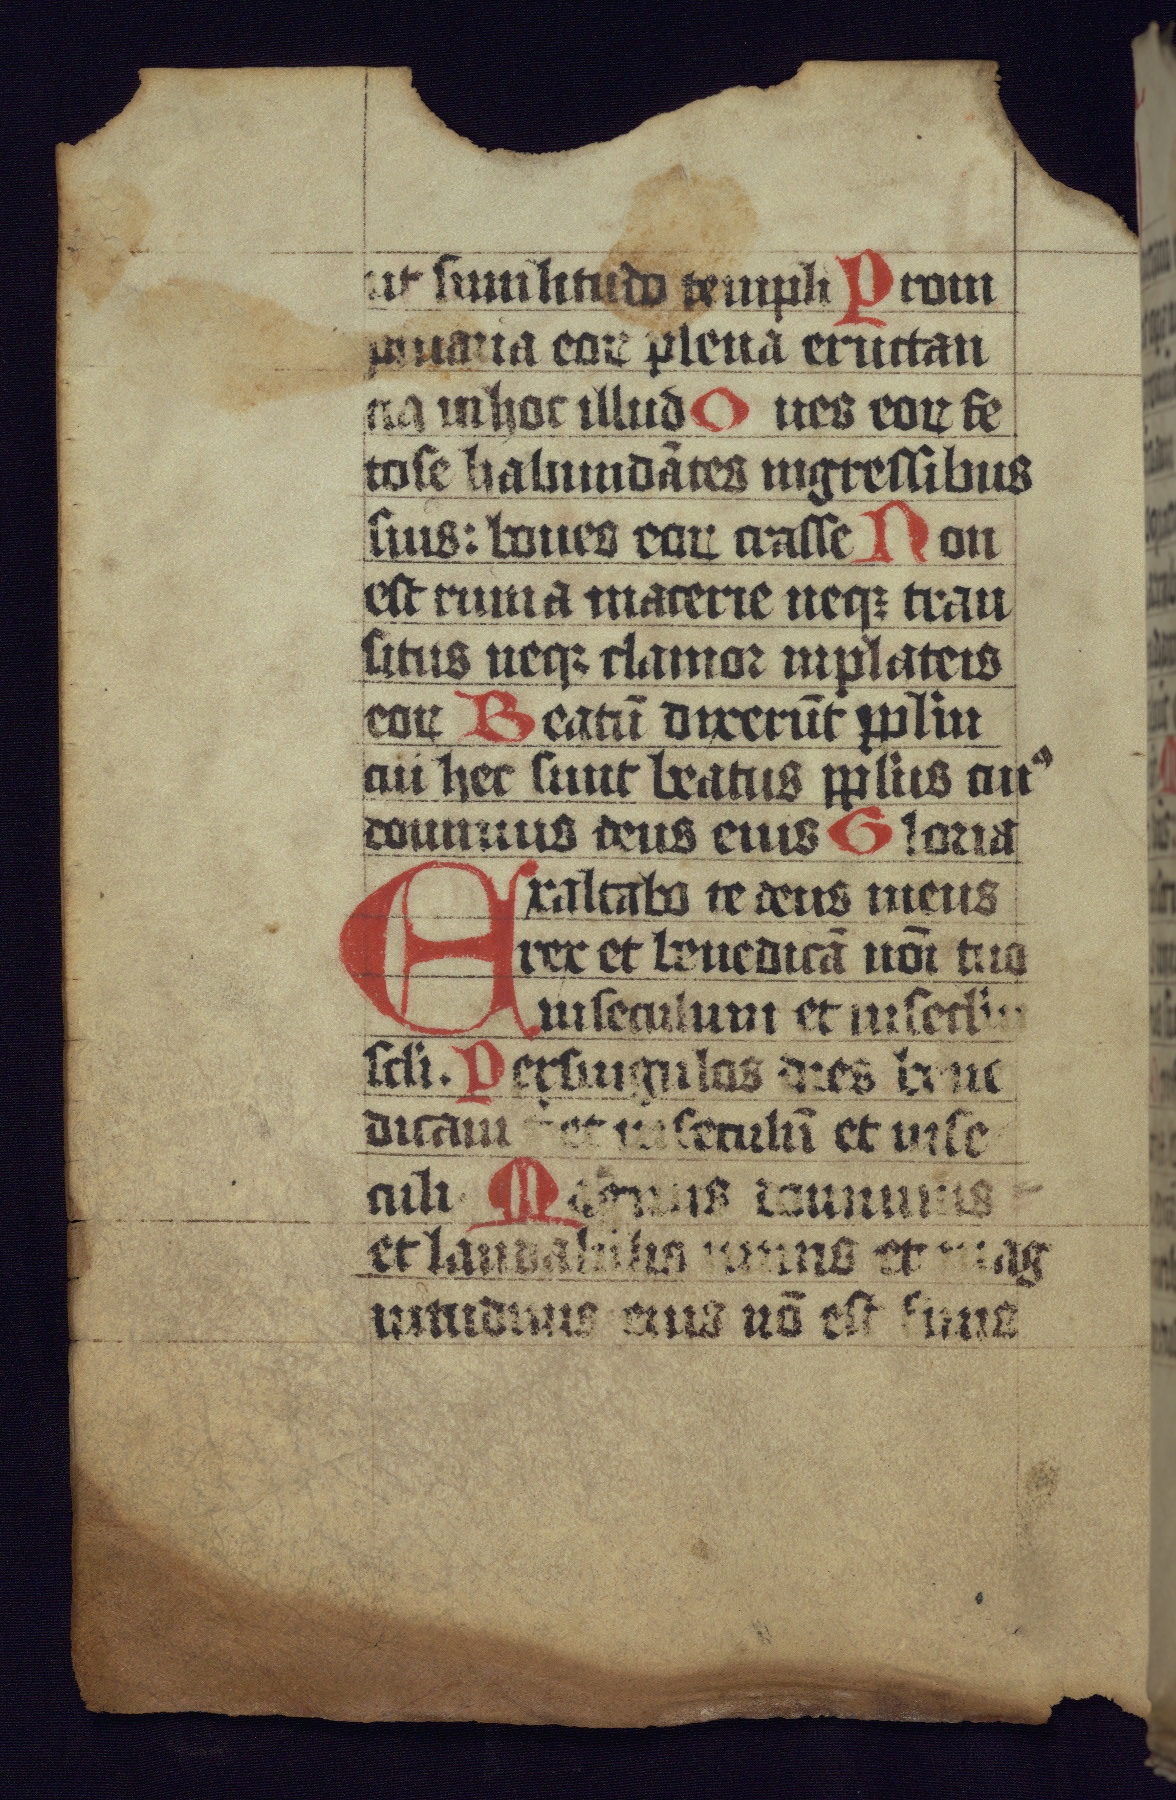 ut similitudo templi Prom
ptuaria eoꝝ plena eructan
tia in hoc illud Oues eoꝝ fe
tose habundātes in gressibus
suis: boues eoꝝ crasse Non
est ruina macerie neqꝫ tran
situs neqꝫ clamor in plateis
eoꝝ Beatū dixerūt pplm
cui hec sunt beatus pplus cuiꝰ
dominus deus eius Gloria
Exaltabo te deus meus
rex et benedicā nōi tuo
in seculum et in seclm
scli. Per singulos dies bene
dicam et in seculū et in se
culi Magnus dominus
et laudabilis nimis et mag
nitudinis eius nō est finis